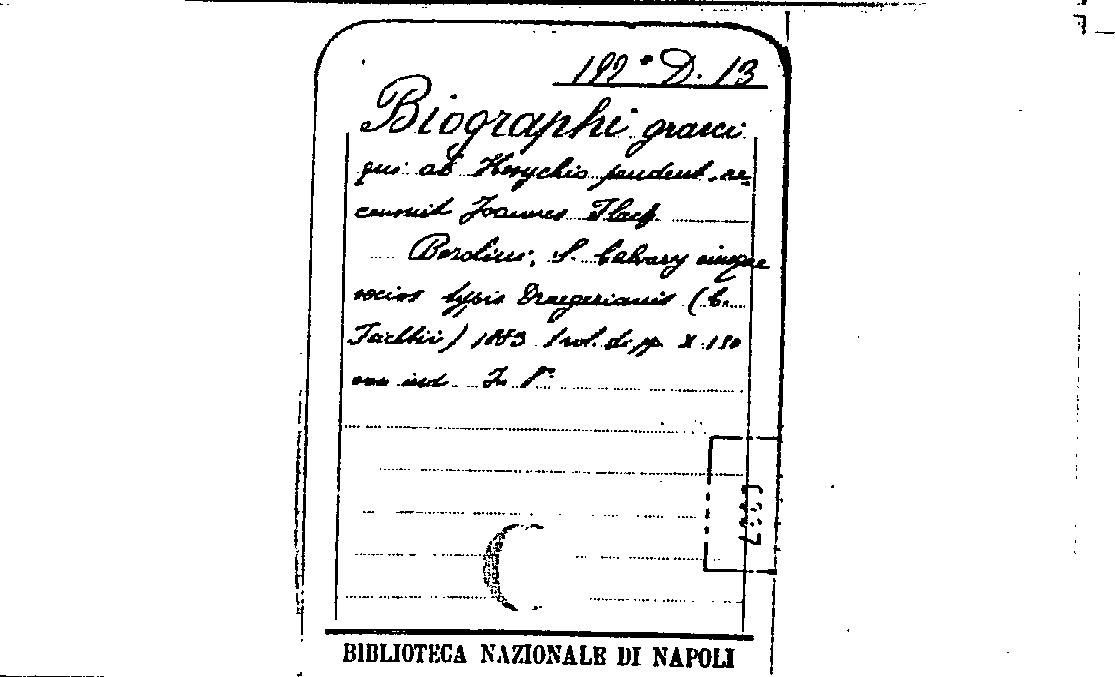 192° D. 13
Biographi graeci
qui ab Hesychio pendent re=
censuit Joannes Flach
Berolini, S. Calvary eiusque
socios typis Draegerianis (C.
Feicht) 1883 1 vol. di pp X 180
In 8°
BIBLIOTECA NAZIONALE DI NAPOLI